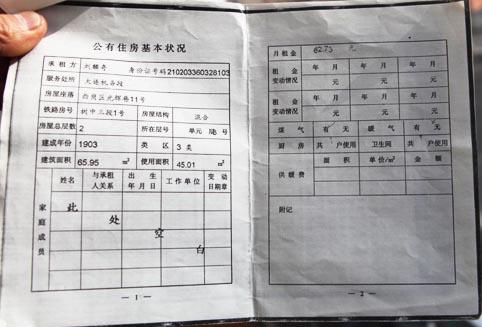 公有住房基本状况
承租方 刘麟奇 身份证号码210203360328103
服务处所 大连机务段
房屋座落 西岗区光辉巷11号
铁路房号 树中三段1号 房屋结构 混合
房屋总层数 2 所在层号 单元 号
建成年份 1903 类区 3类
建筑面积 65.95 m² 使用面积 45.01 m²
家庭成员
姓名 与承租人关系 出生年月日 工作单位 变动日期章
此
处
空
白
— 1 —
月租金 62.73 元
租金变动情况 年 月 年 月 年 月
元 元 元
租金变动情况 年 月 年 月 年 月
元 元 元
煤气 有 无 暖气 有 无
厨房 共 户使用 卫生间 共 户使用
供暖费 面积 单价/m² 金额
附记
— 2 —